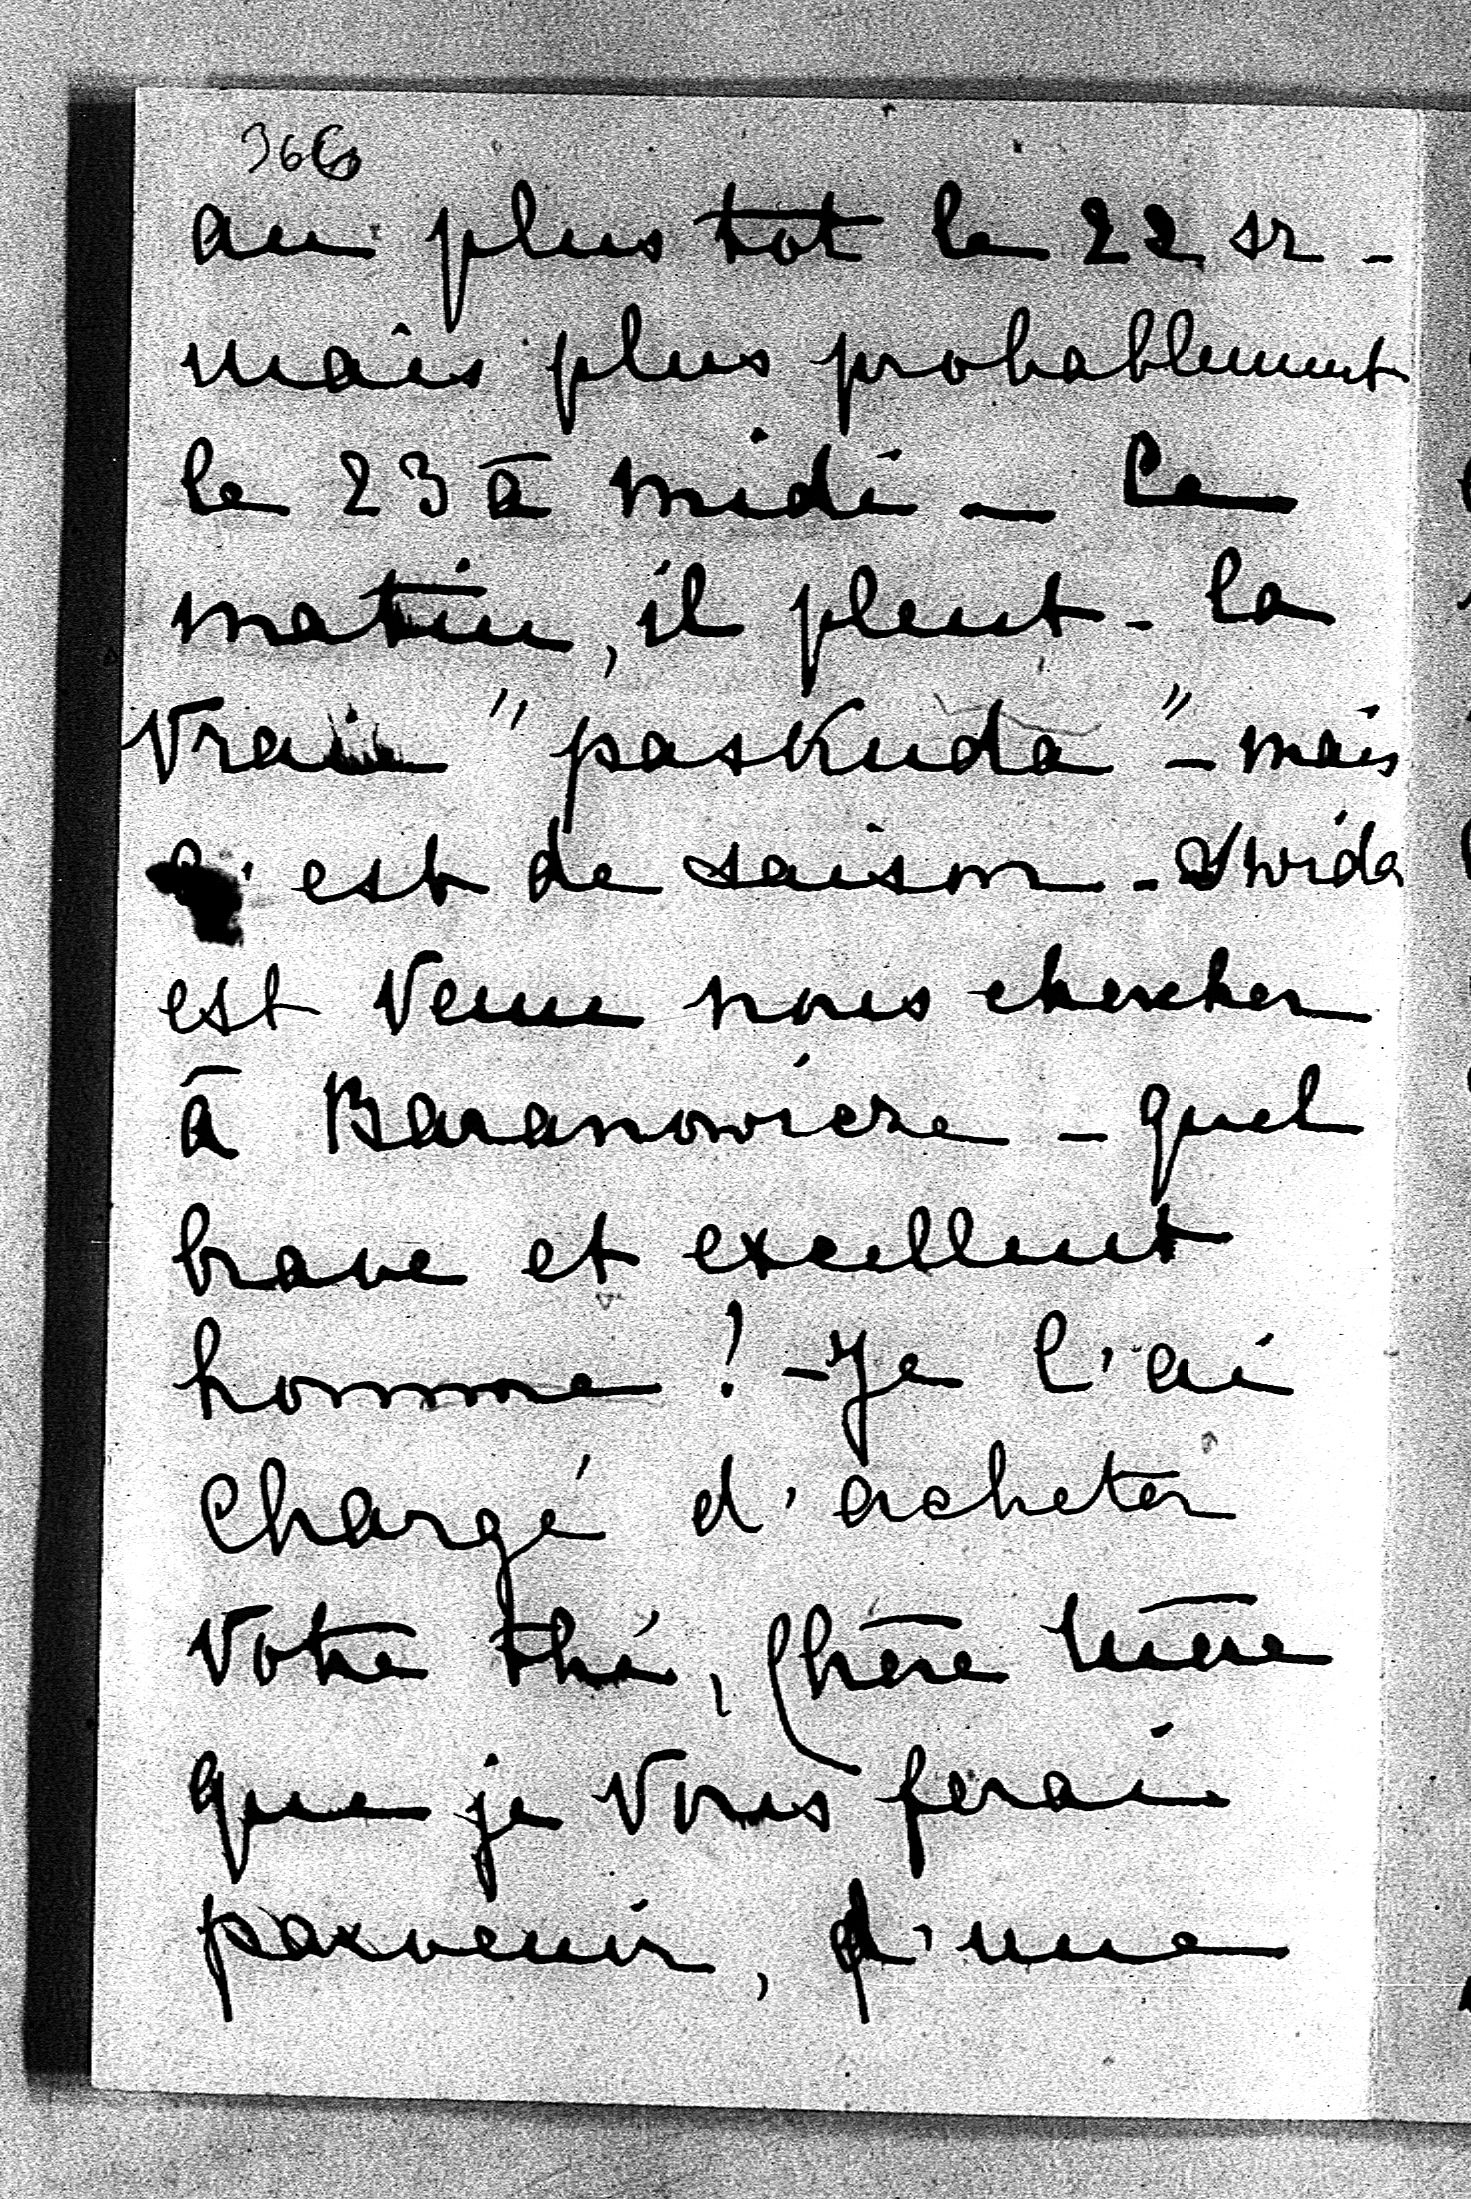 au plus tot le 22 sr -
mais plus probablement
le 23 à midi - Ce
matin, il pleut - la
vraie "paskuda" - mais
c'est de saison -
est venu nous chercher
à Baranowicze - quel
brave et excellent
homme ! - Je l'ai
chargé d'acheter
votre thé, Chère Mère
que je vous ferai
parvenir, d'une